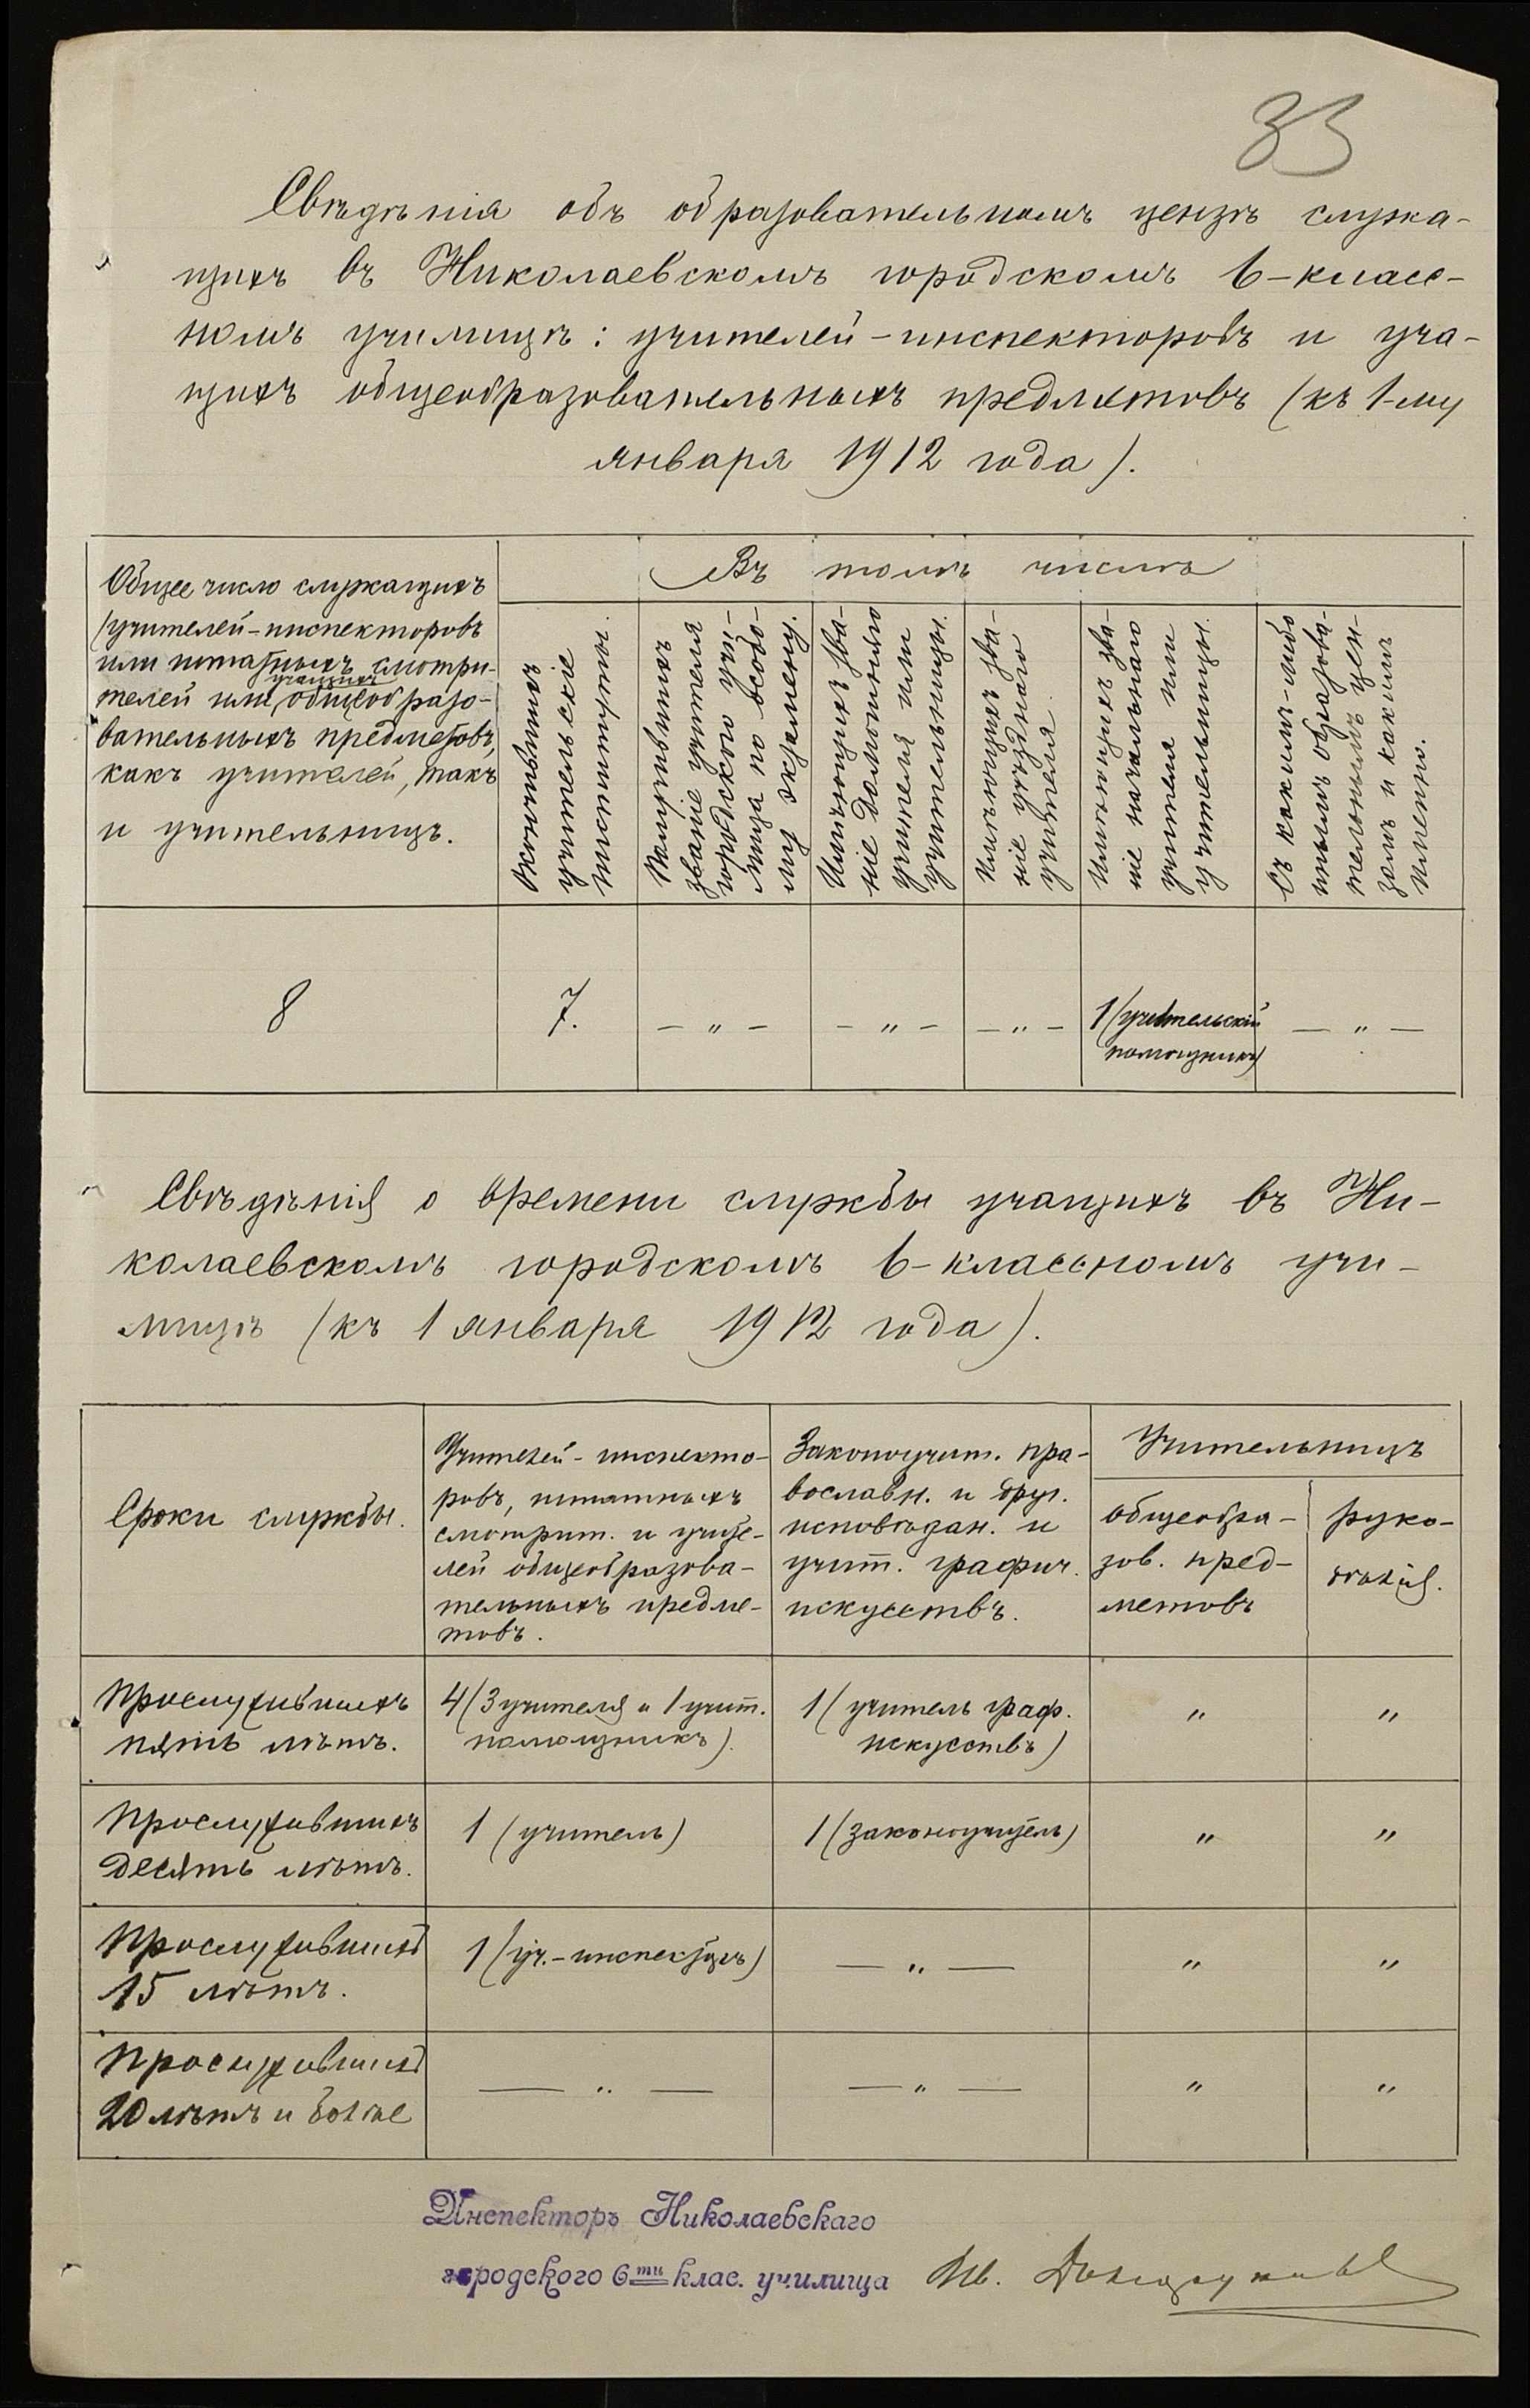 33
Свѣдѣнія объ образовательномъ цензѣ служа-
щихъ въ Николаевскомъ городскомъ 6-класс-
номъ училищѣ: учителей-инспекторовъ и уча-
щихъ общеобразовательныхъ предметовъ (къ 1-му
января 1912 года).
Общее число служащихъ
(учителей-инспекторовъ
или штатныхъ смотри-
учащихъ
телей или общеобразо-
вательныхъ предметовъ,
какъ учителей, такъ
и учительницъ.
Въ томъ числѣ
Окончившихъ
учительскіе
институты.
Получившихъ
званіе учителя
городского учи-
лища по особо-
му экзамену.
Имѣющихъ зва-
ніе домашняго
учителя или
учительницы.
Имѣющихъ зва-
ніе уѣзднаго
учителя.
Имѣющихъ зва-
ніе начальнаго
учителя или
учительницы.
Съ какимъ-либо
инымъ образова-
тельнымъ цен-
зомъ и какимъ
именно.
8 7. — „ — — „ — — „ — 1 (учительскій — „ —
помощникъ)
Свѣдѣнія о времени службы учащихъ въ Ни-
колаевскомъ городскомъ 6-классномъ учи-
лищѣ (къ 1 января 1912 года).
Сроки службы.
Учителей-инспекто-
ровъ, штатныхъ
смотрит. и учите-
лей общеобразова-
тельныхъ предме-
товъ.
Законоучит. пра-
вославн. и друг.
исповѣдан. и
учит. графич.
искусствъ.
Учительницъ
общеобра-
зов. пред-
метовъ
руко-
дѣлія.
Прослужившихъ 4 (3 учителя и 1 учит. 1 (учитель граф. „ „
пять лѣтъ. помощникъ). искусствъ)
Прослужившихъ 1 (учитель) 1 (законоучитель) „ „
десять лѣтъ.
Прослужившихъ 1 (уч.-инспекторъ) — „ — „ „
15 лѣтъ.
Прослужившихъ — „ — — „ — „ „
20 лѣтъ и болѣе
Инспекторъ Николаевскаго
городского 6ти клас. училища Ив.